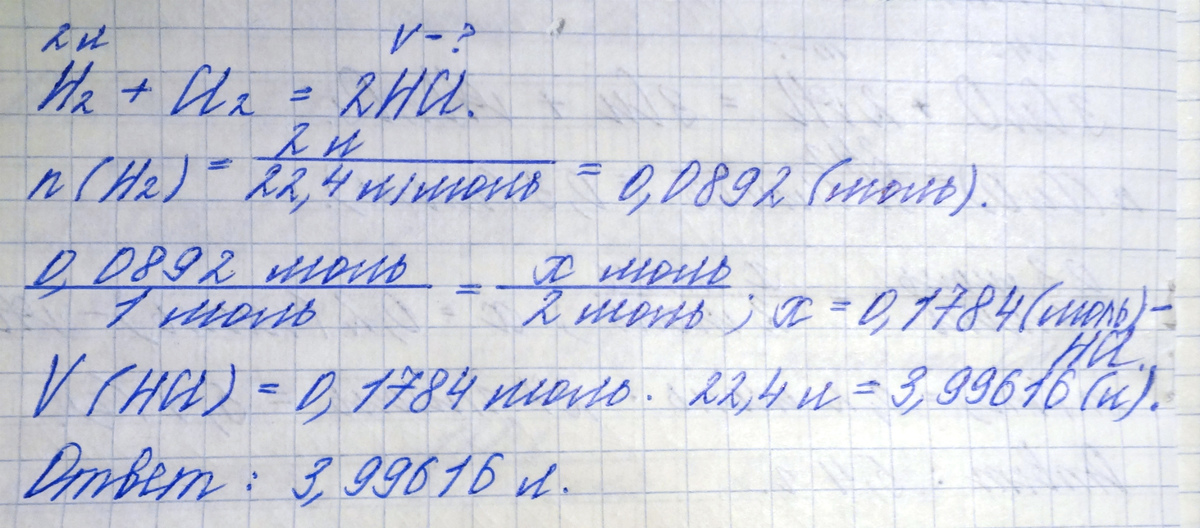 2 л V - ?
H₂ + Cl₂ = 2HCl.
n(H₂) = 2 л / 22,4 л/моль = 0,0892 (моль).
0,0892 моль / 1 моль = x моль / 2 моль ; x = 0,1784 (моль) - HCl.
V (HCl) = 0,1784 моль · 22,4 л = 3,99616 (л).
Ответ : 3,99616 л.